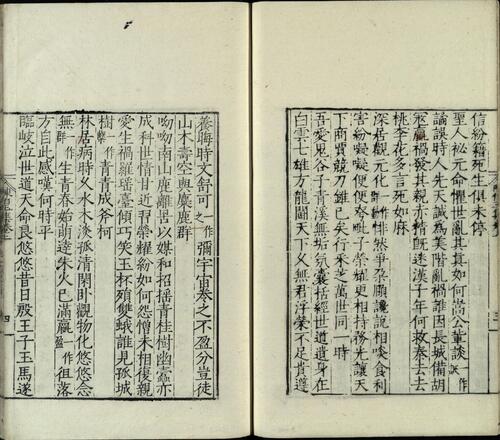 信紛籍死生俱未停
聖人祕元命懼世亂其真如何嵩公輩談一作詼
譎誤時人先天誠為美階亂禍誰因長城備胡
寇嬴禍發其親赤精旣迷漢子年何救秦去去
桃李花多言死如麻
深居觀元化一作悱然爭朶頤讒說相啖食利
害紛㘈㘈便便夸毗子榮耀更相持務光讓天
下商賈競刀錐已矣行采芝萬世同一時
吾愛鬼谷子青溪無垢氛囊括經世道遺身在
白雲七雄方龍鬭天下久無君浮榮不足貴遵
養晦時文舒可一作之彌宇宙卷之不盈分豈徒
山木壽空與麋鹿群
呦呦南山鹿罹罟以媒和招搖青桂樹幽蠹亦
成科世情甘近習榮耀紛如何怨憎未相復親
愛生禍羅瑤臺傾巧笑玉杯殞雙蛾誰見孤城
樹一作蘖青青成斧柯
林居病時久水木淡孤清閑卧觀物化悠悠念
無一作群生青春始萌達朱火已滿嬴一作盈徂落
方自此感嘆何時平
臨岐泣世道天命良悠悠昔日殷王子玉馬遂
四